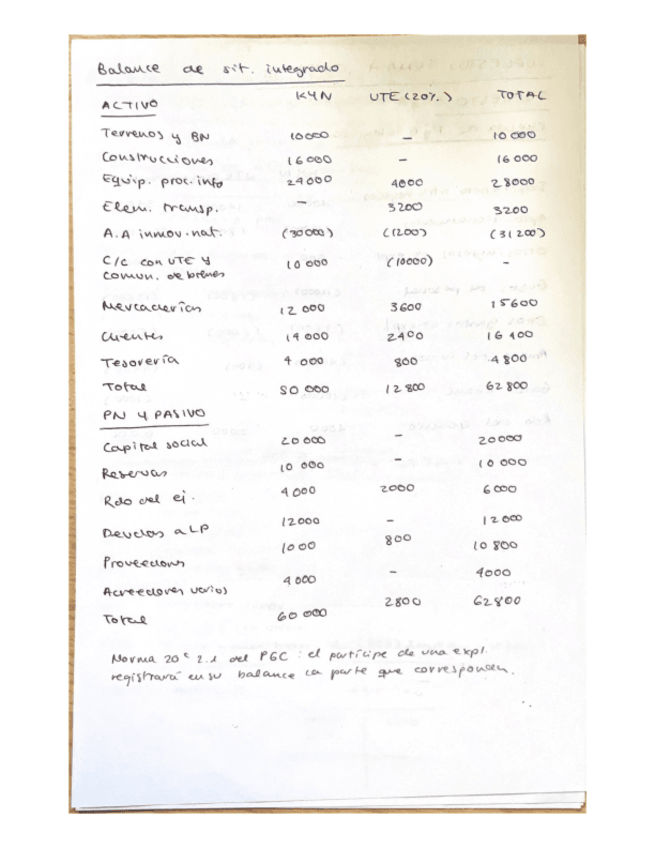 Balance de sit. integrado
ACTIVO KYN UTE (20%) TOTAL
Terrenos y BN 10000 - 10 000
Construcciones 16 000 - 16 000
Equip. proc. info 24000 4000 28000
Elem. transp. - 3200 3200
A.A inmov. nat. (30000) (1200) (31 200)
C/C con UTE y 10 000 (10000) -
comun. de bienes
Mercaderías 12 000 3600 15600
Clientes 14 000 2400 16 400
Tesorería 4 000 800 4 800
Total 50 000 12 800 62 800
PN Y PASIVO
Capital social 20 000 - 20000
Reservas 10 000 - 10 000
Rdo del ej. 4000 2000 6 000
Deudas a LP 12000 - 12 000
Proveedores 1000 800 10 800
Acreedores varios 4 000 - 4000
Total 60 000 2800 62800
Norma 20ª 2.1 del PGC : el partícipe de una expl.
registrará en su balance la parte que corresponden.